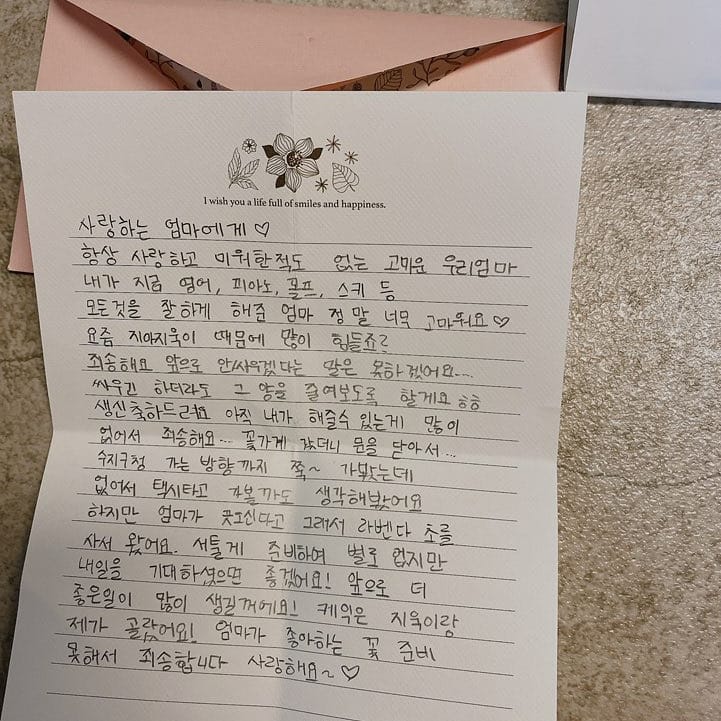 I wish you a life full of smiles and happiness.
사랑하는 엄마에게 ♡
항상 사랑하고 미워한적도 없는 고마운 우리엄마
내가 지금 영어, 피아노, 골프, 스키 등
모든것을 잘하게 해준 엄마 정말 너무 고마워요 ♡
요즘 지아지욱이 때문에 많이 힘들죠?
죄송해요 앞으로 안싸우겠다는 말은 못하겠어요...
싸우긴 하더라도 그 양을 줄여보도록 할게요 ㅎㅎ
생신축하드려요 아직 내가 해줄수있는게 많이
없어서 죄송해요... 꽃가게 갔더니 문을 닫아서...
수지구청 가는 방향까지 쭉~ 가봤는데
없어서 택시타고 가볼까도 생각해봤어요
하지만 엄마가 오신다고 그래서 라벤다 초를
사서 왔어요. 서툴게 준비하여 별로 없지만
내일을 기대하셨으면 좋겠어요! 앞으로 더
좋은일이 많이 생길꺼에요! 케익은 지욱이랑
제가 골랐어요! 엄마가 좋아하는 꽃 준비
못해서 죄송합니다 사랑해요~ ♡